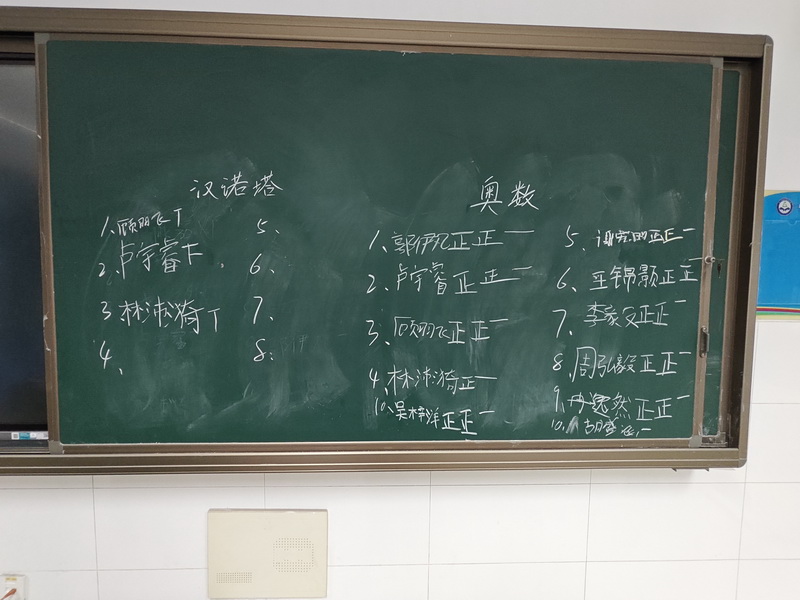 汉诺塔
1、顾明飞 T
2、卢宇睿 下
3、林沛漪 T
4、
5、
6、
7、
8、
奥数
1、郭 正正一
2、卢宇睿 正正一
3、顾明飞 正正一
4、林沛漪 正一
10、吴梓洋 正正一
5、谢 正正一
6、王锦颢 正正一
7、李家 正正一
8、周弘毅 正正一
9、然 正正一
10、